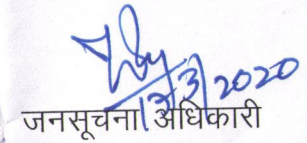 3/2020
जनसूचना अधिकारी